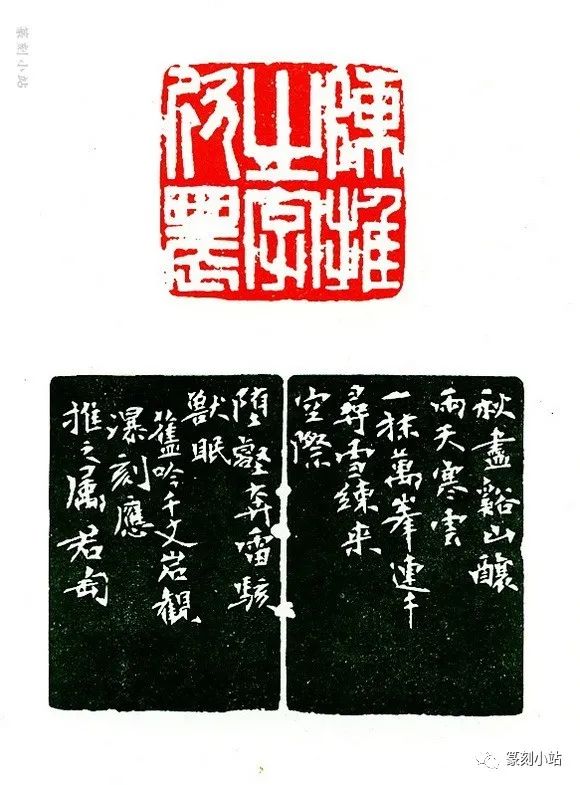 篆刻小站
陳推
之字
秋盡谿山釀
雨天寒雲
一抹萬峯連千
尋雪練来
空際
堕壑奔雷駭
獸眠
舊吟千丈岩觀
瀑刻應
推之属若匋
篆刻小站